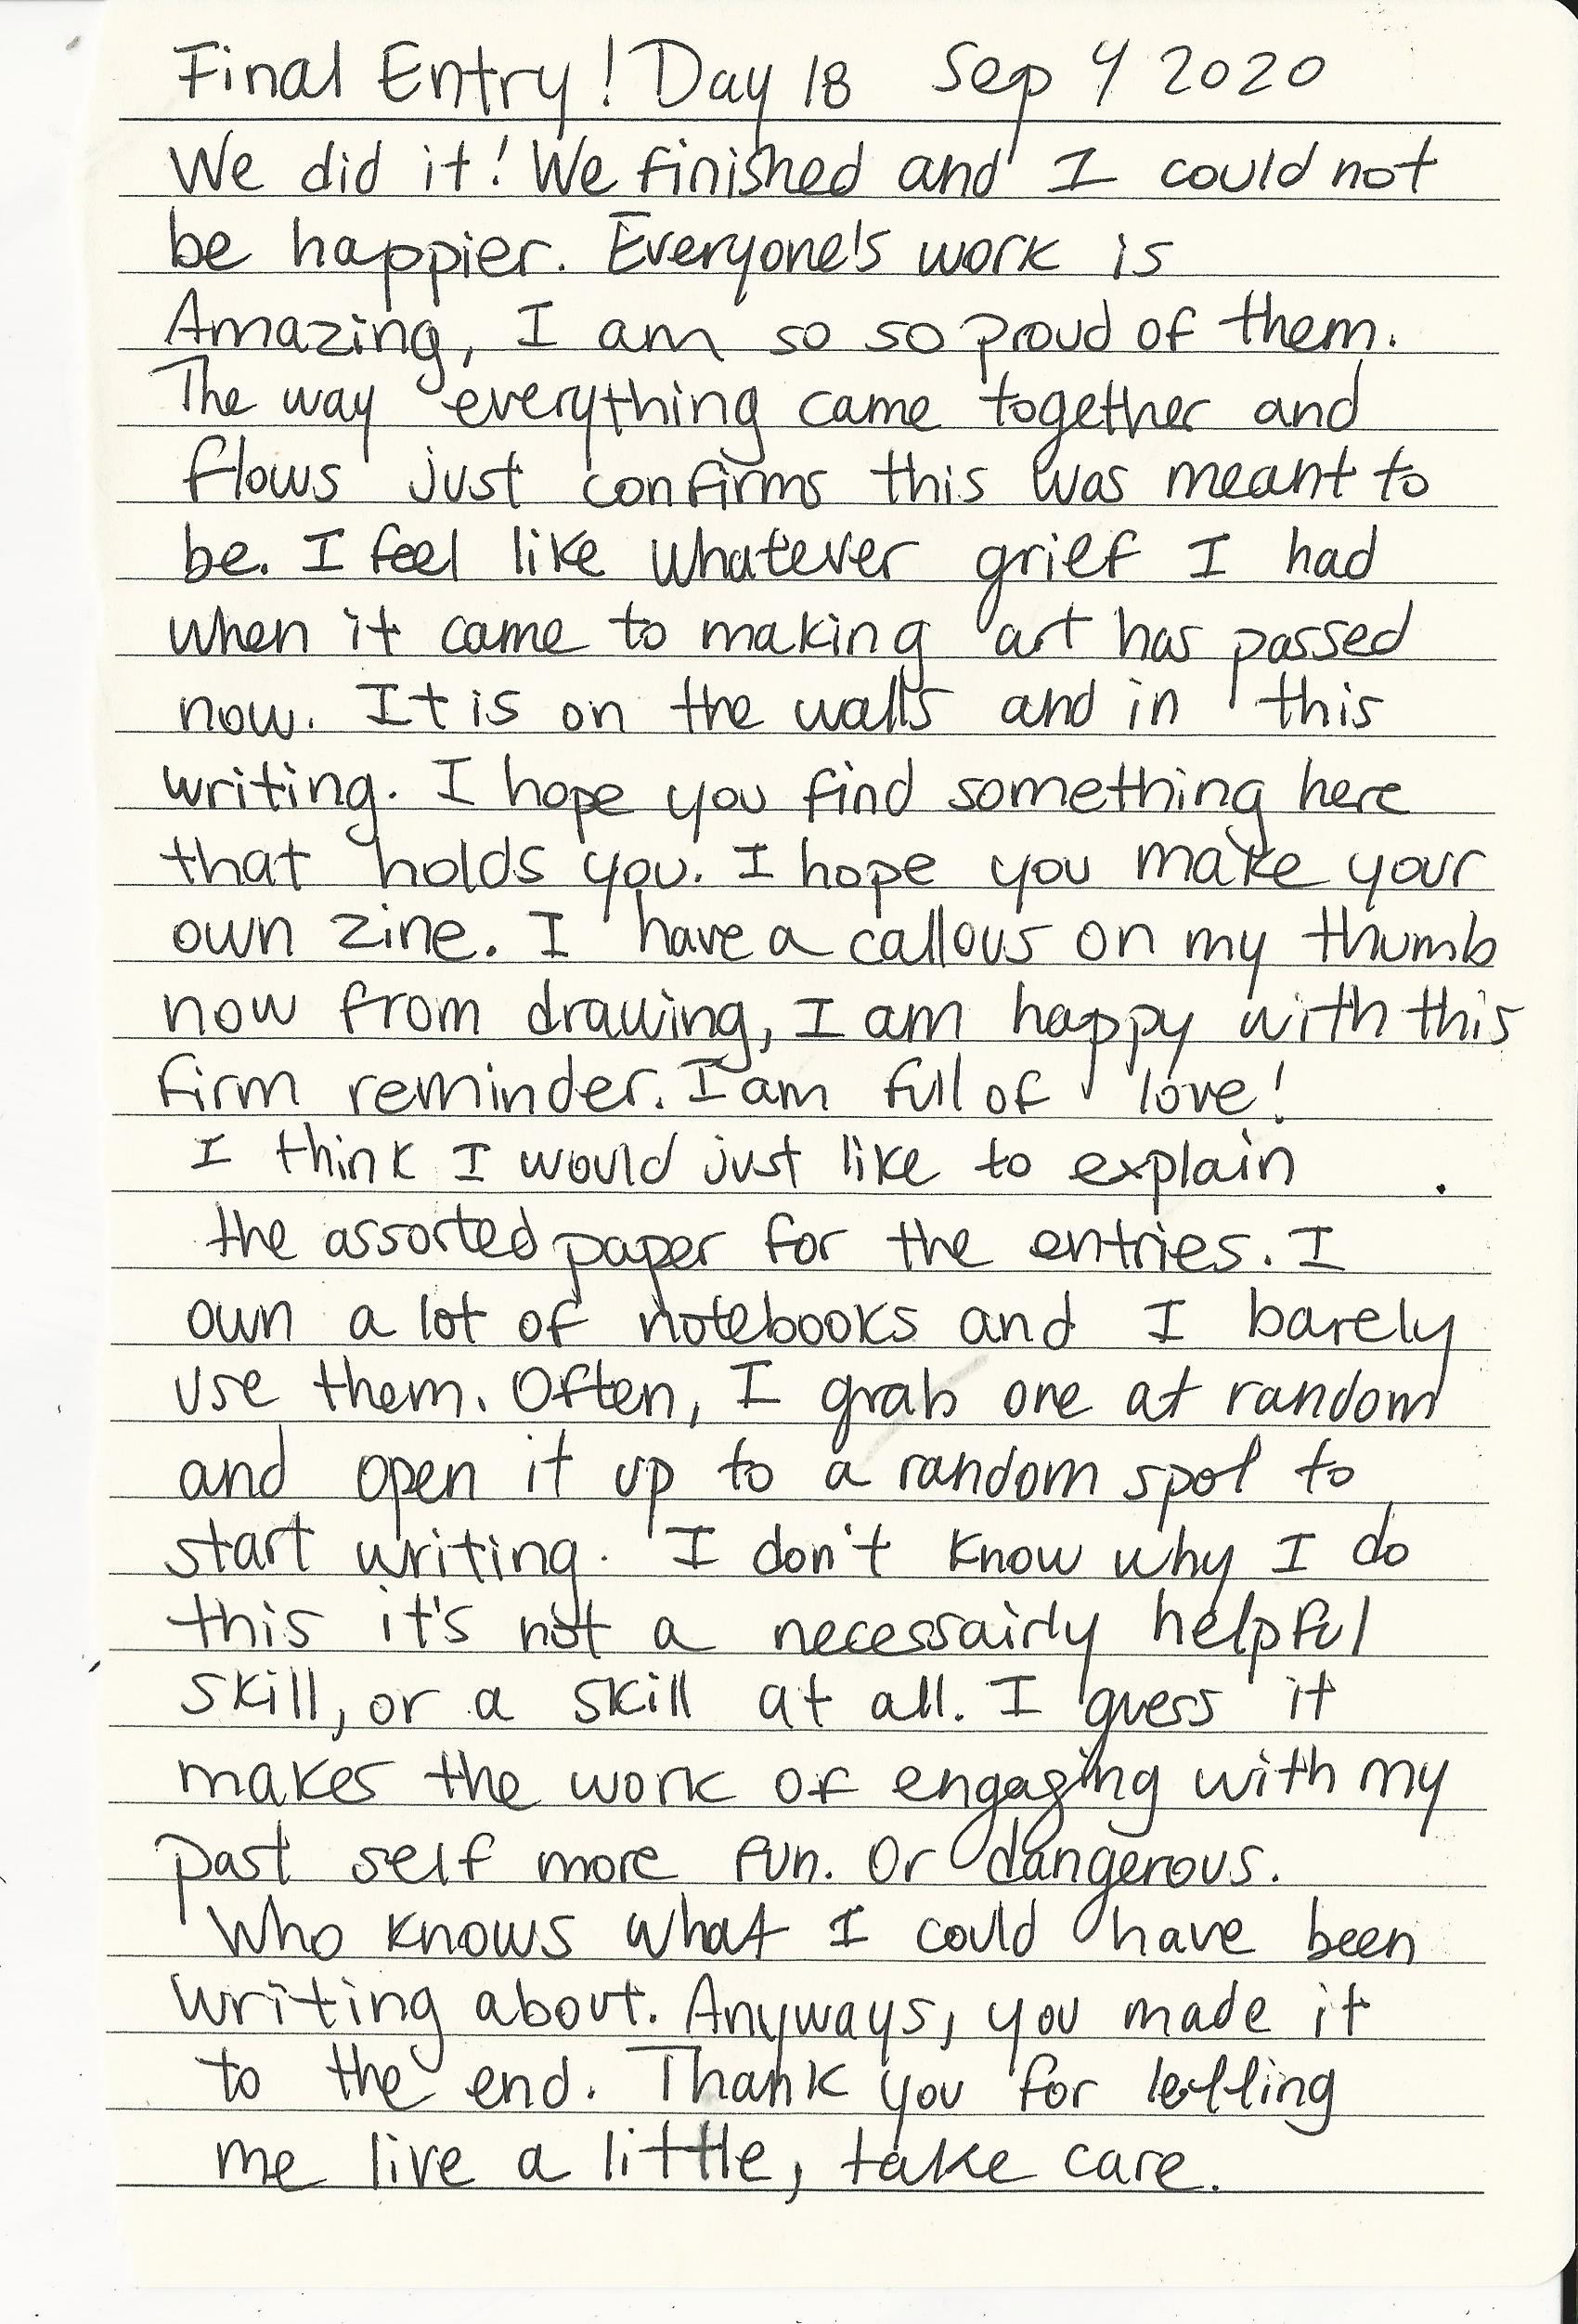 Final Entry! Day 18 Sep 4 2020
We did it! We finished and I could not
be happier. Everyone's work is
Amazing, I am so so proud of them.
The way everything came together and
flows just confirms this was meant to
be. I feel like whatever grief I had
when it came to making art has passed
now. It is on the walls and in this
writing. I hope you find something here
that holds you. I hope you make your
own zine. I have a callous on my thumb
now from drawing, I am happy with this
firm reminder. I am full of love!
I think I would just like to explain
the assorted paper for the entries. I
own a lot of notebooks and I barely
use them. Often, I grab one at random
and open it up to a random spot to
start writing. I don't know why I do
this it's not a necessairly helpful
skill, or a skill at all. I guess it
makes the work of engaging with my
past self more fun. Or dangerous.
Who knows what I could have been
writing about. Anyways, you made it
to the end. Thank you for letting
me live a little, take care.